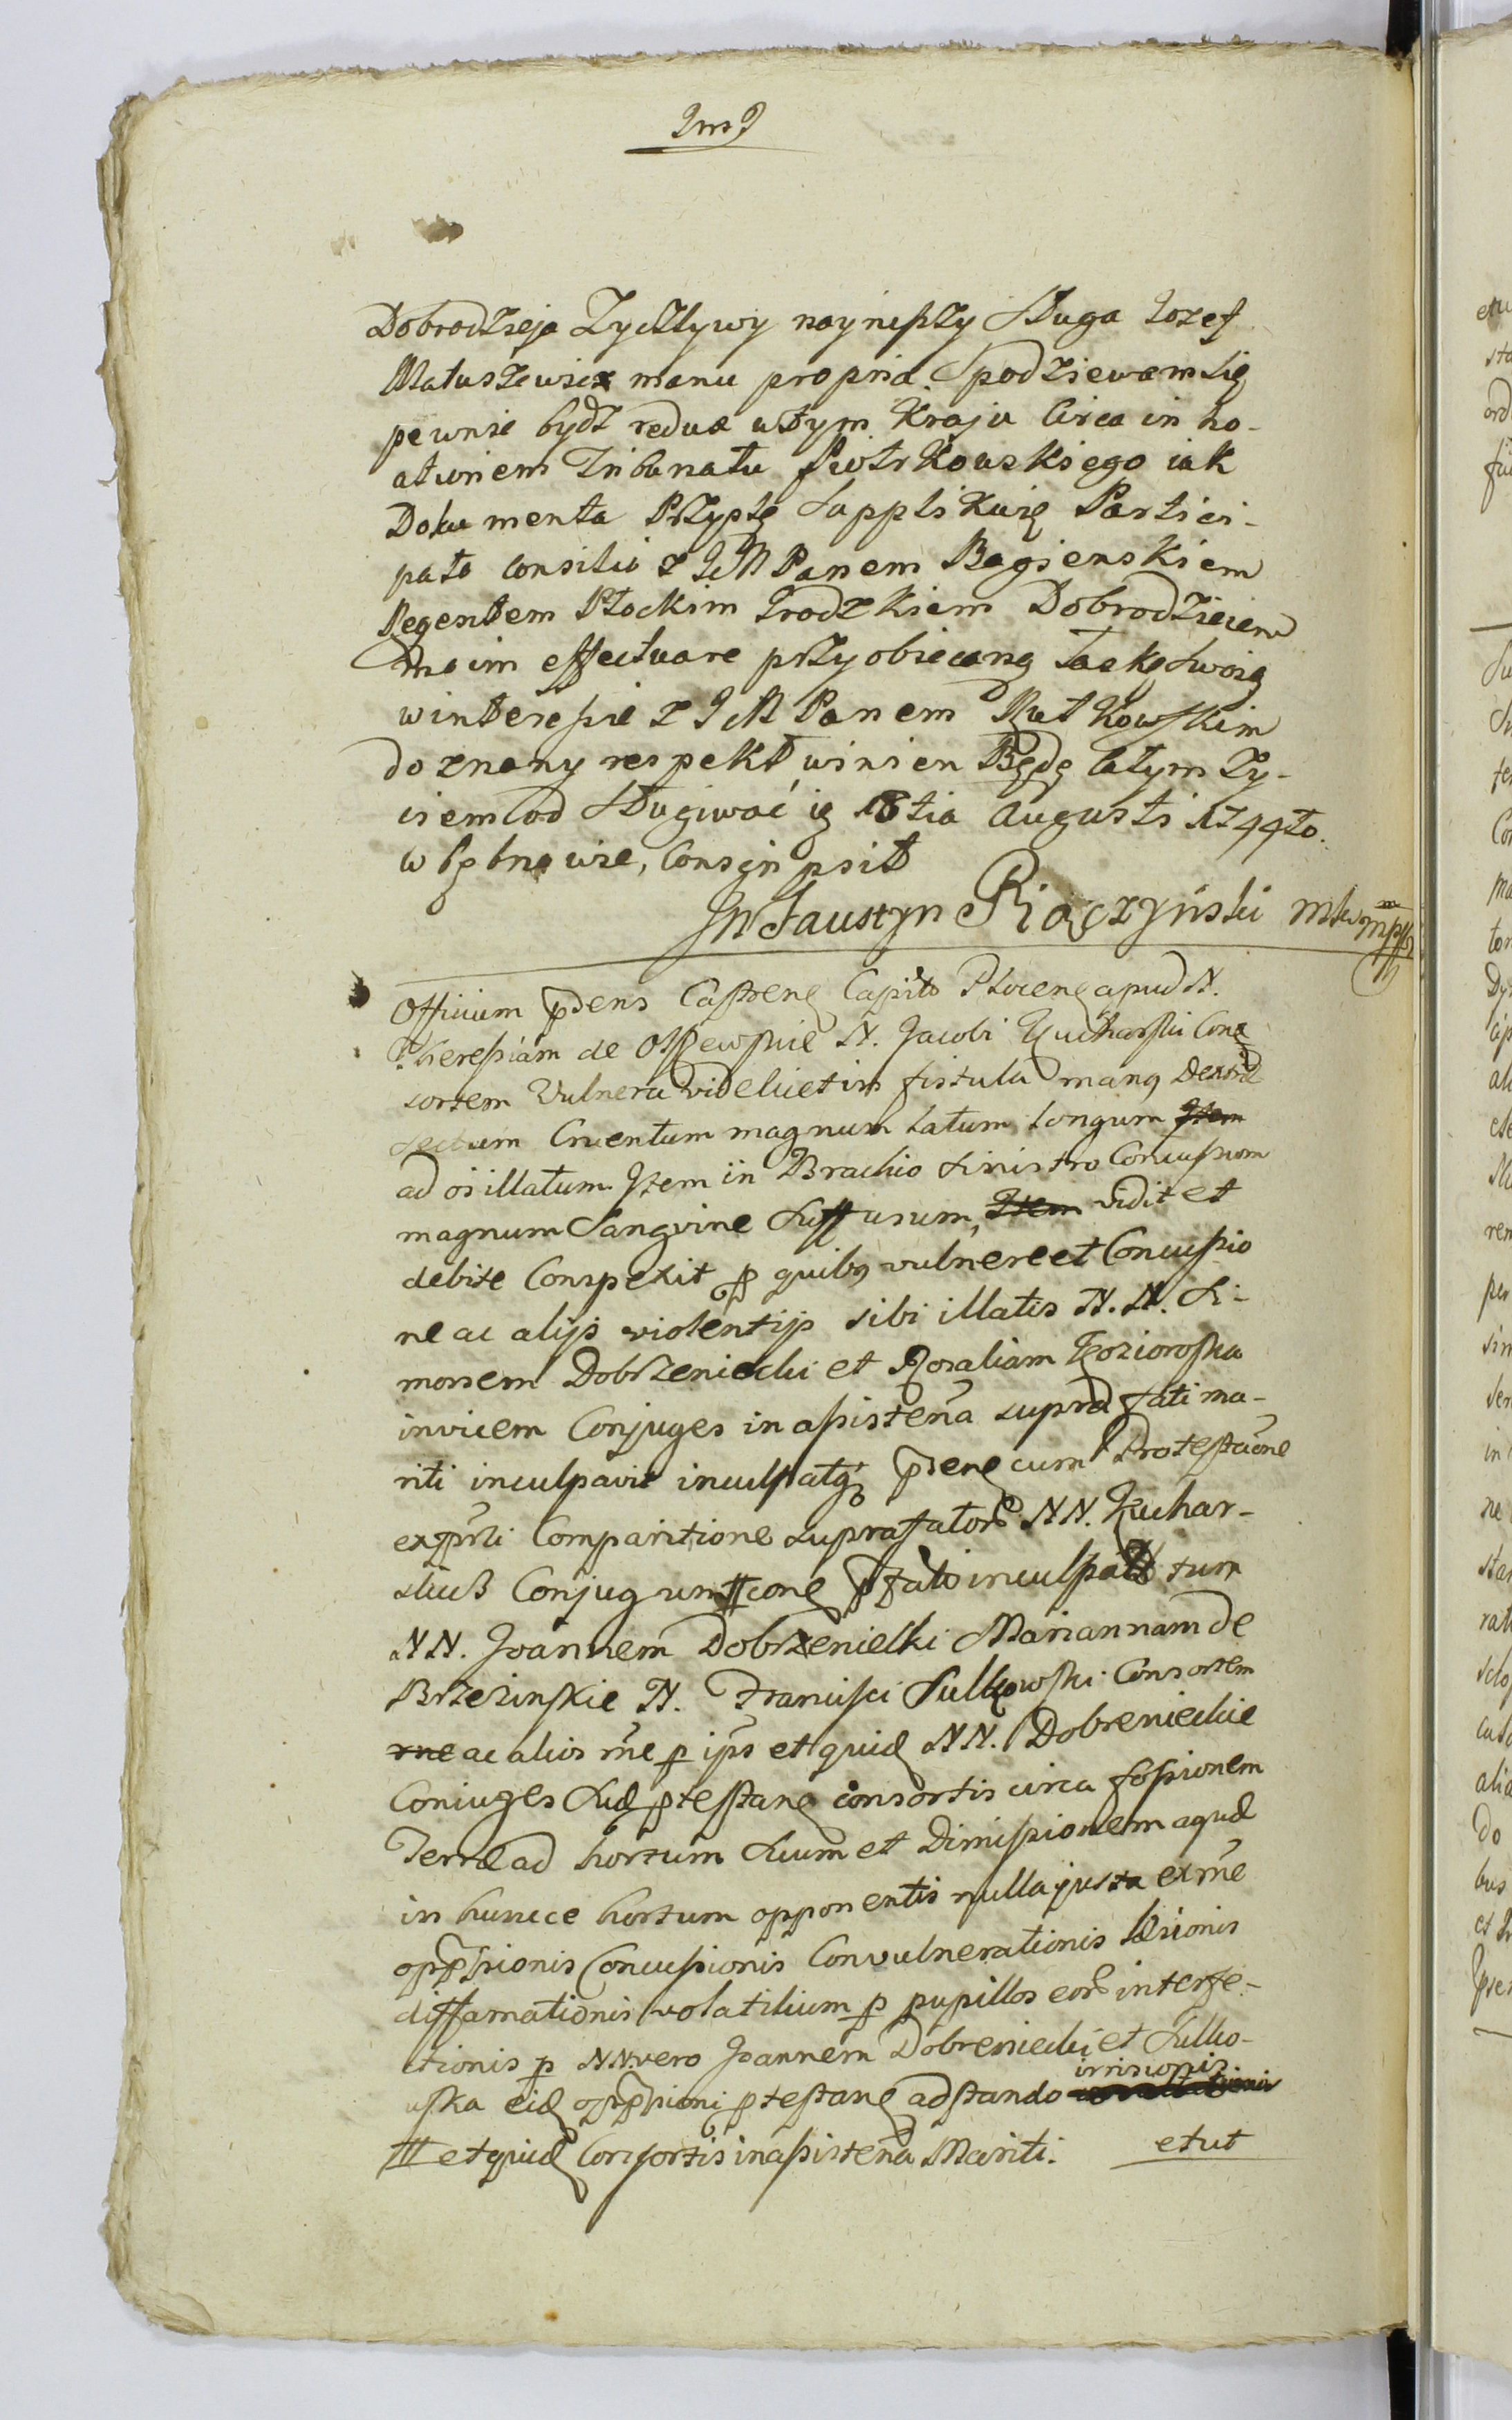 Dobrodzieja Zyczliwy nayniższy Sługa Jozef
Matuszewicz manu propria. Spodziewam się
pewnie bydź redux w tym Kraju Circa in ho-
Tribunału Piotrkowskiego iak
Dokumenta Przyszlę Supplikuię Partici-
pato Consilio z JeM Panem Bagienskiem
Regentem Płockim Grodzkiem Dobrodzieiem
moim effectuare przyobiecaną Łaskę Swoią
w interessie z JeM Panem Rutkowskim
doznany respekt winien Będę całym Zy-
ciem od Sługiwać ią 18tia Augusti 1744to.
Conscripsit
Faustyn
Officium prdens Castrenę Capito Plocenę apud N.
Theressiam de Olszewskie N. Jacobi Kucharski Con
sortem Vulnera videlicet in fistula manꝯ Dextræ
sectum Cruentum magnum latum longum Item
ad os illatum. Item in Brachio sinistro Concussum
magnum Sangvine Suffusum, Item vidit et
debite Conspexit p quibꝯ vulnere et Concussio
ne ac alijs violentijs sibi illatis N. N. Si-
monem Dobrzeniecki et Rosaliam Kozioroska
invicem Conjuges in assistena supra fati ma-
riti inculpavit inculpatꝗ prdenę cum Protestaone
ex prli Comparitione suprafator NN. Kuchar-
Conjugum cone p fato inculpat tum
NN. Joannem Dobrzenielki Mariannam de
Brzezinskie N. Francisci Sulkowski Consortem
rne ac alios rne p ips et quid NN. Dobreniechie
Coniuges Suæ ptestanę consortis circa fossionem
Terræ ad hortum Suum et Dimissionem aquæ
in huncce hortum opponentis nulla justa ex rne
oppssionis Concussionis Convulnerationis læsionis
diffamationis volatilium p pupillos eor interfe-
ctionis p NN. vero Joannem Dobreniecki et Sulko-
uska eid oppssioni ptestanę adstando irrisionis
et quid Consortis in assistena Mariti. et ut